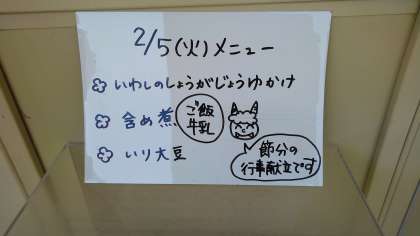 2/5(火)メニュー
いわしのしょうがじょうゆかけ
含め煮
ご飯
牛乳
いり大豆
節分の
行事献立です